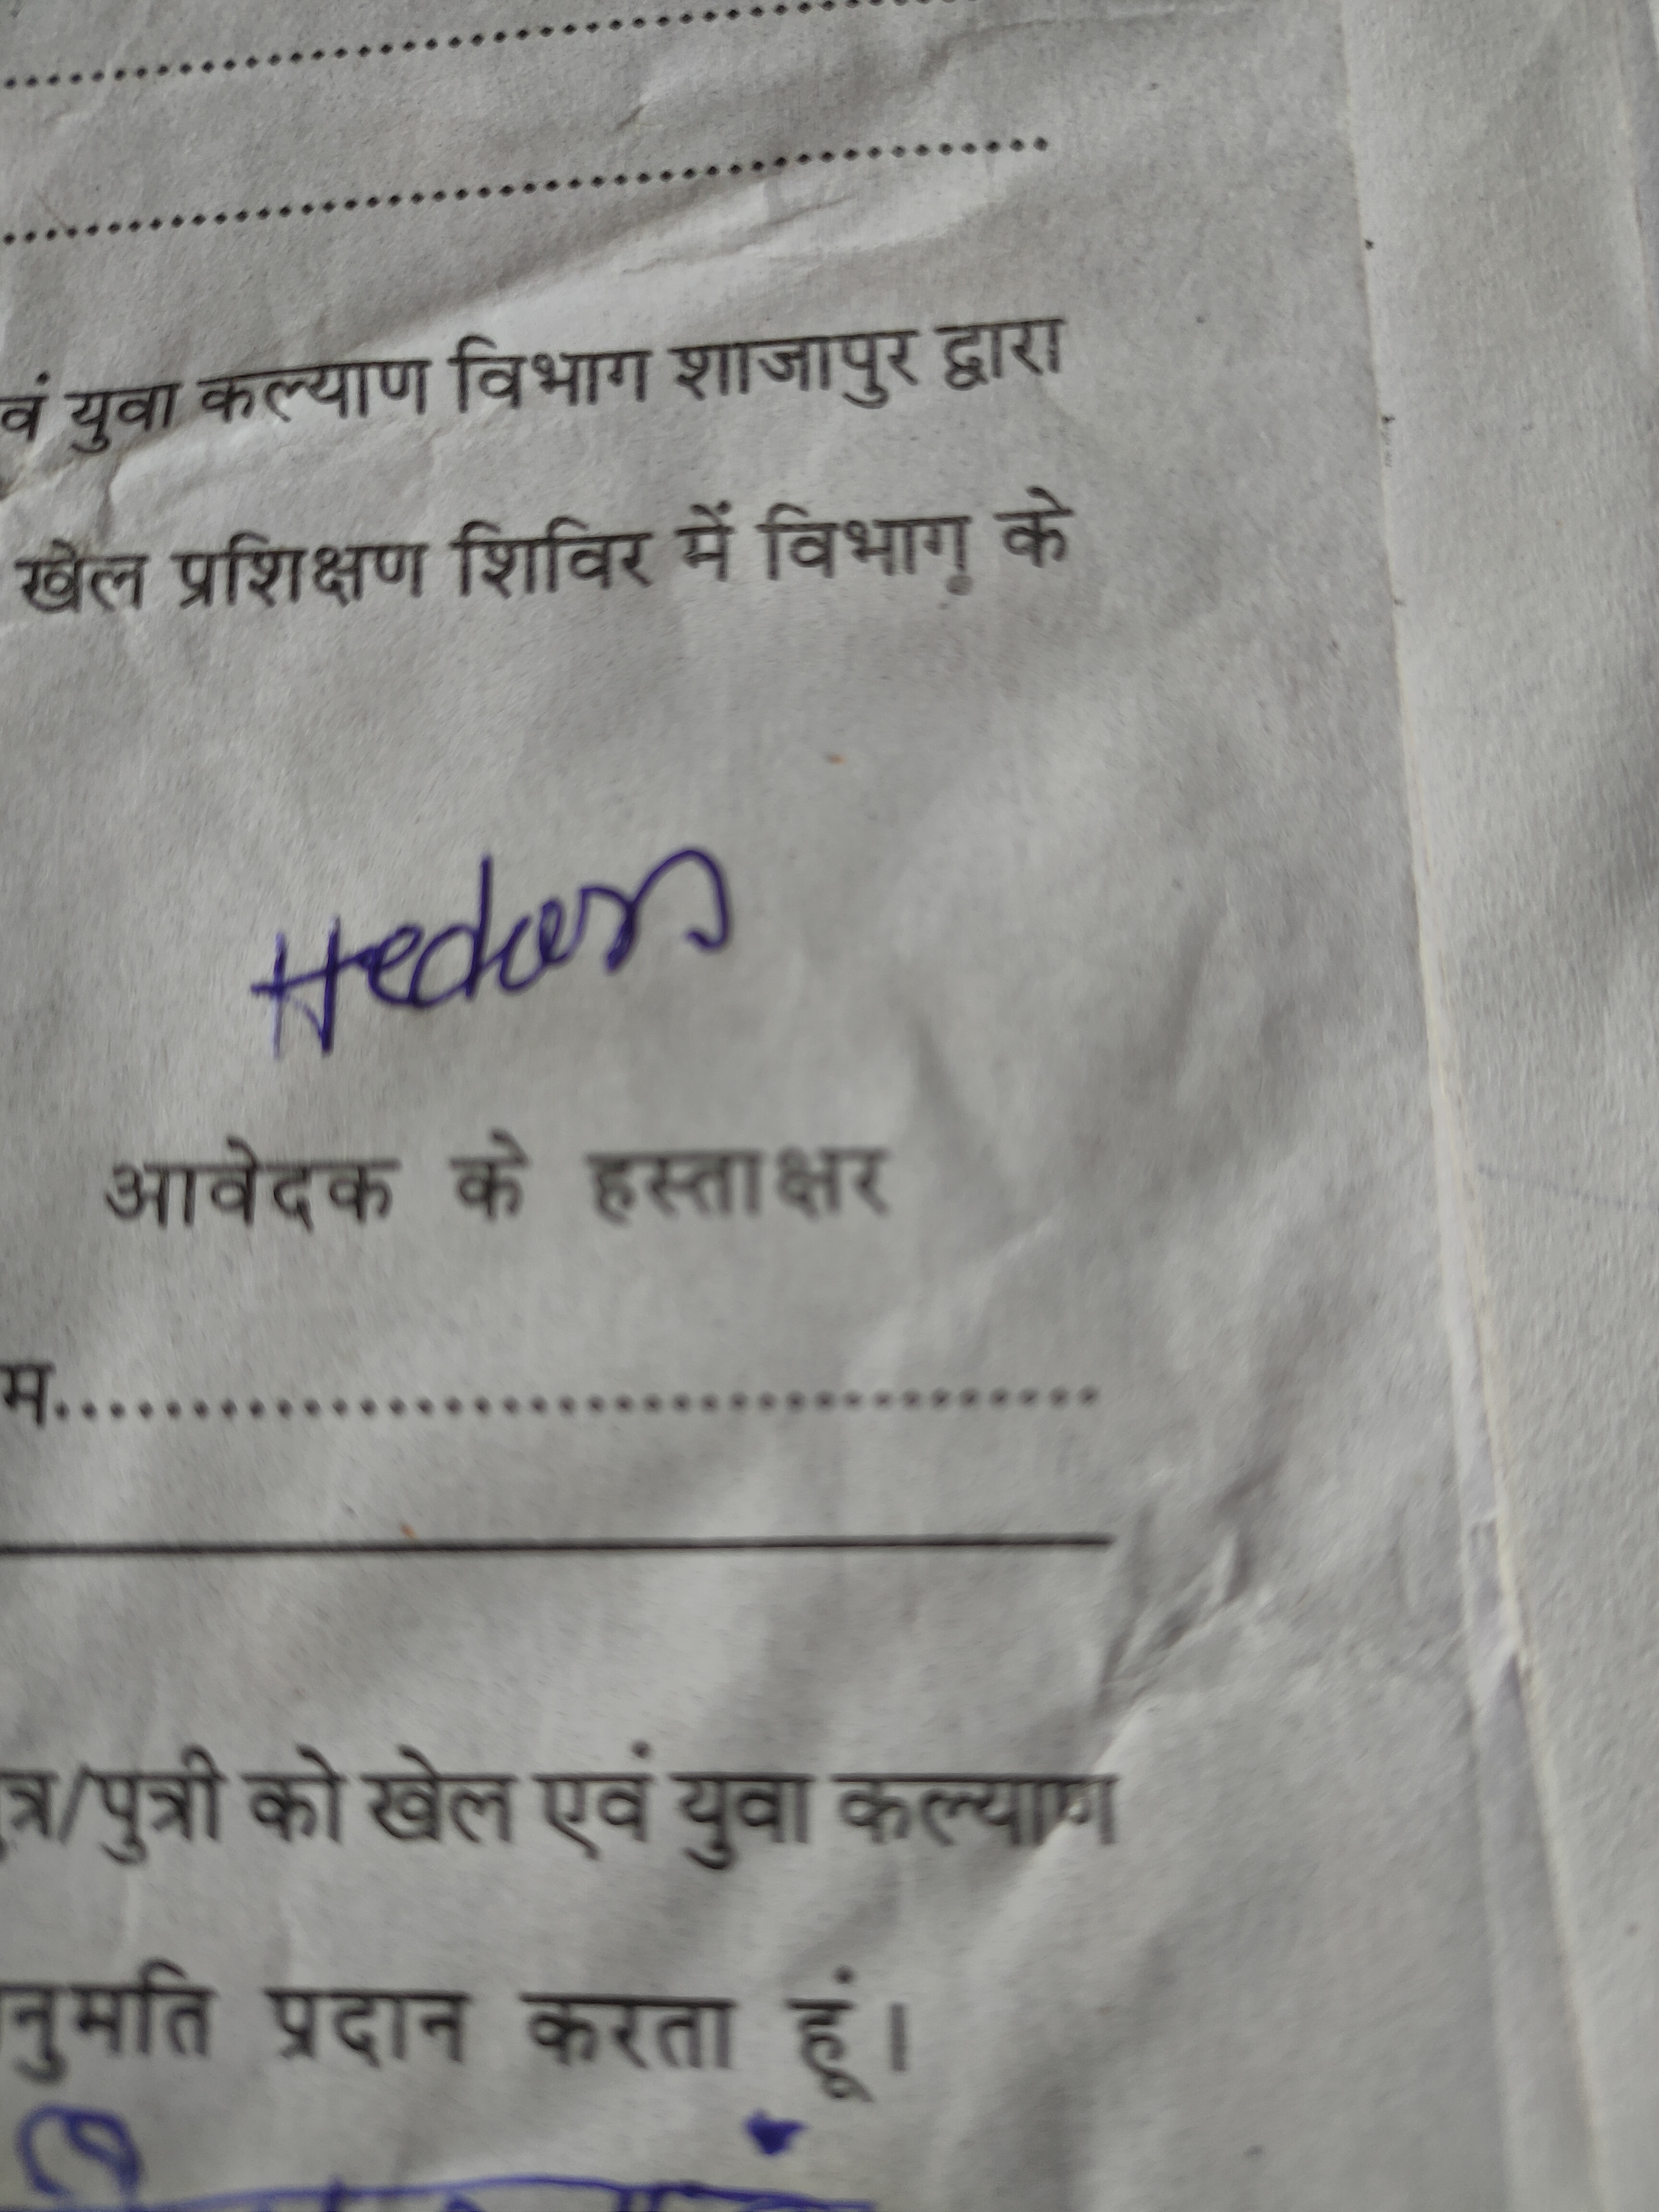 वं युवा कल्याण विभाग शाजापुर द्वारा
खेल प्रशिक्षण शिविर में विभाग के
आवेदक के हस्ताक्षर
म.......................................
त्र/पुत्री को खेल एवं युवा कल्याण
नुमति प्रदान करता हूं।